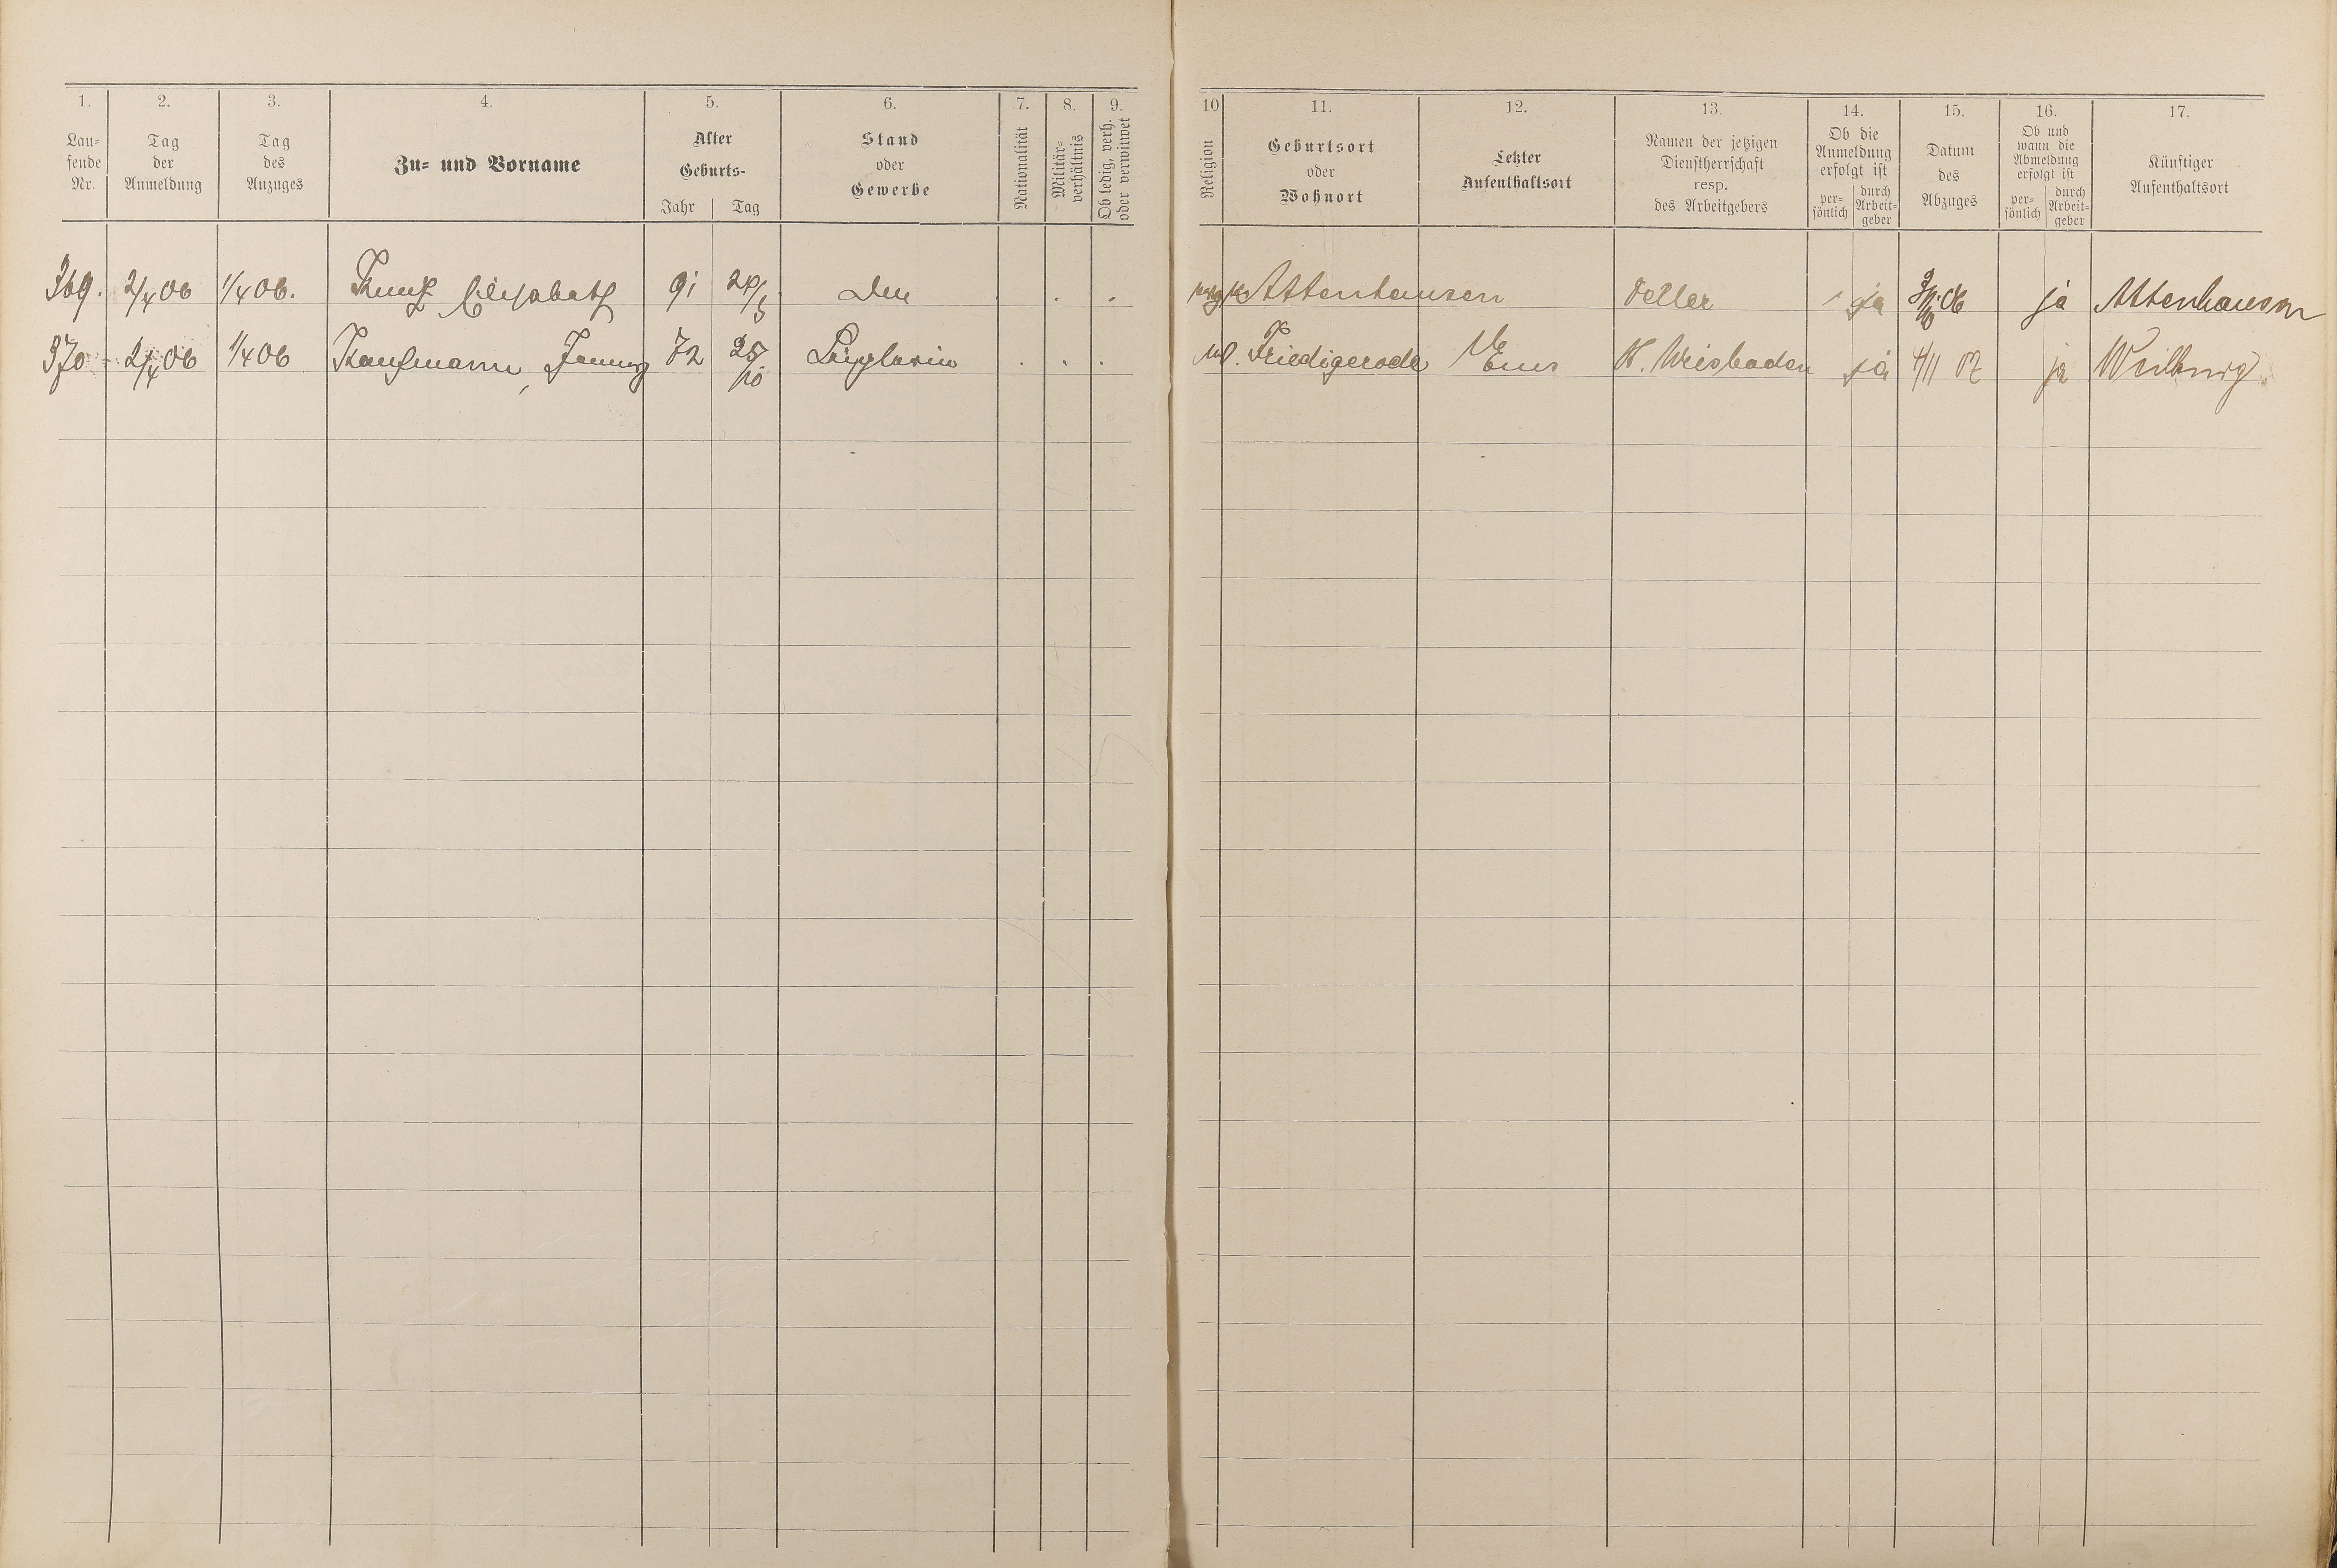 1. 2. 3. 4. 5. 6. 7. 8. 9. 10 11. 12. 13. 14. 15. 16. 17.
Lau-
fende
Nr.
Tag
der
Anmeldung
Tag
des
Anzuges
Zu- und Vorname
Alter
Geburts-
Jahr Tag
Stand
oder
Gewerbe
Nationalität
Militär-
verhältnis
Ob ledig, verh.
oder verwitwet
Religion
Geburtsort
oder
Wohnort
Letzter
Aufenthaltsort
Namen der jetzigen
Dienstherrschaft
resp.
des Arbeitgebers
Ob die
Anmeldung
erfolgt ist
per-
sönlich
durch
Arbeit-
geber
Datum
des
Abzuges
Ob und
wann die
Abmeldung
erfolgt ist
per-
sönlich
durch
Arbeit-
geber
Künftiger
Aufenthaltsort
369. 2/4 06 1/4 06. Elisabeth 91 Attenhausen ja ja Attenhausen
370 2/4 06 1/4 06 Kaufmann, 72 25/10 Büglerin Friedigerode Ems K. Wiesbaden ja 4/11 07 ja Weilburg